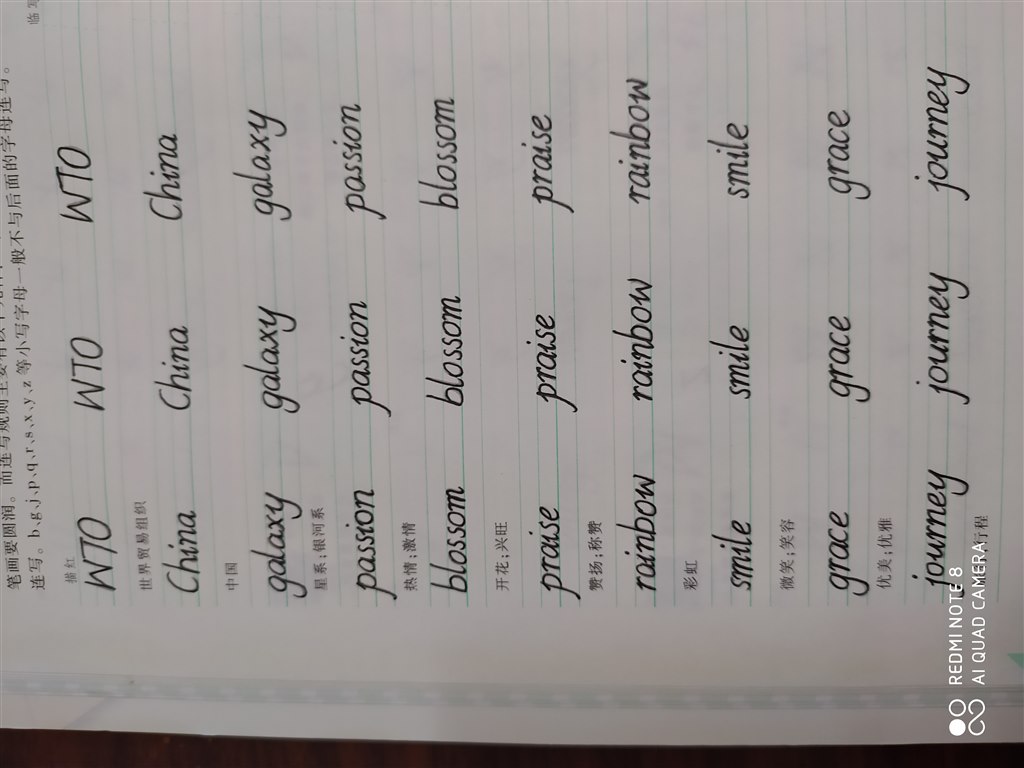 笔画要圆润。
连写。b、g、j、p、q、r、s、x、y、z 等小写字母一般不与后面的字母连写。
描红
临写
WTO WTO WTO
世界贸易组织
China China China
中国
galaxy galaxy galaxy
星系；银河系
passion passion passion
热情；激情
blossom blossom blossom
开花；兴旺
praise praise praise
赞扬；称赞
rainbow rainbow rainbow
彩虹
smile smile smile
微笑；笑容
grace grace grace
优美；优雅
journey journey journey
行程
REDMI NOTE 8
AI QUAD CAMERA